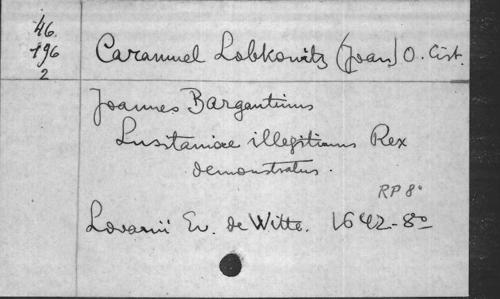 46.
196
2
Caramuel Lobkowitz (Joan) O. Cist.
Joannes Bargantinus
Lusitaniae illegitimus Rex
demonstratus.
RP 8°
Lovanii Ev. de Witte. 1642 - 8°